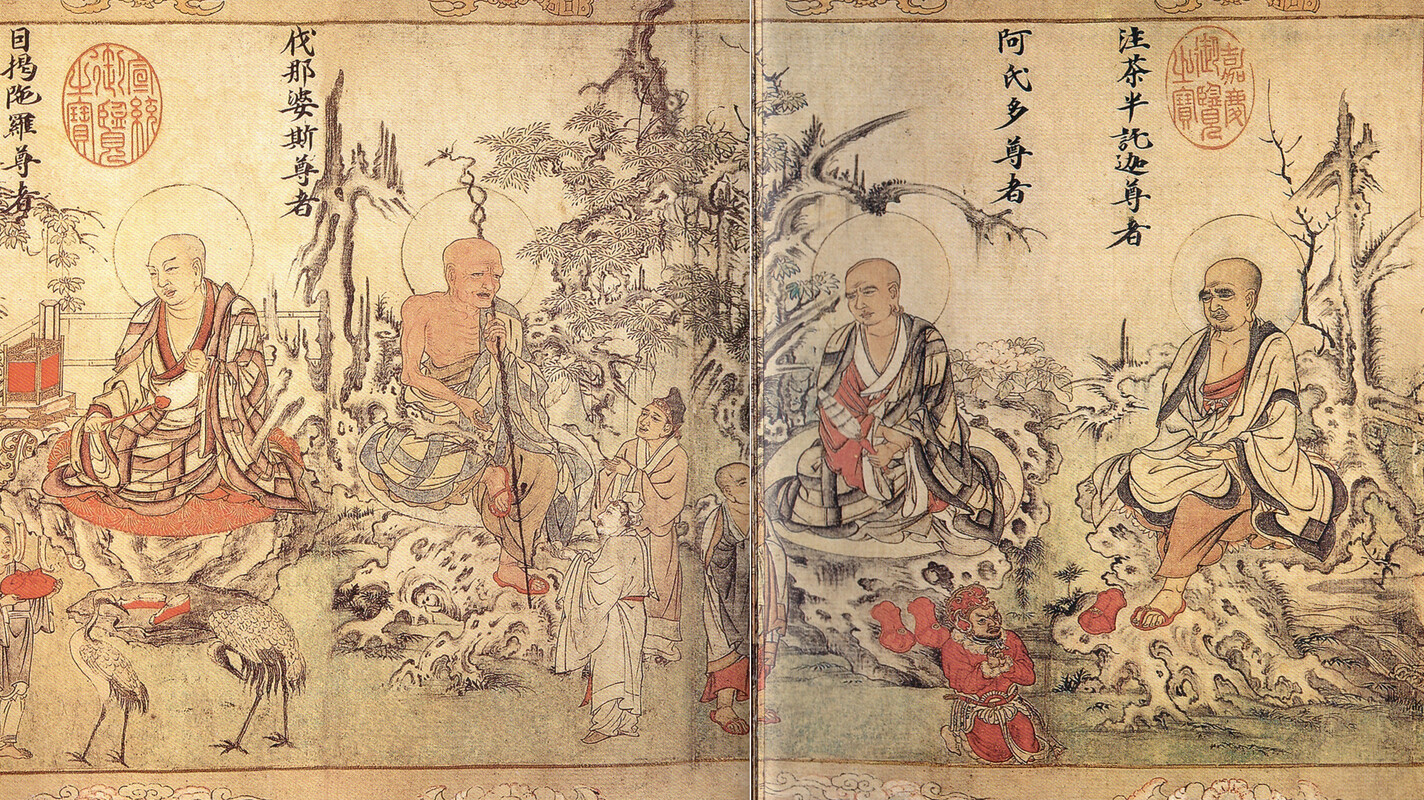 嘉慶御覽之寶
注茶半託迦尊者
阿氏多尊者
伐那婆斯尊者
宣統御覽之寶
因揭陁羅尊者